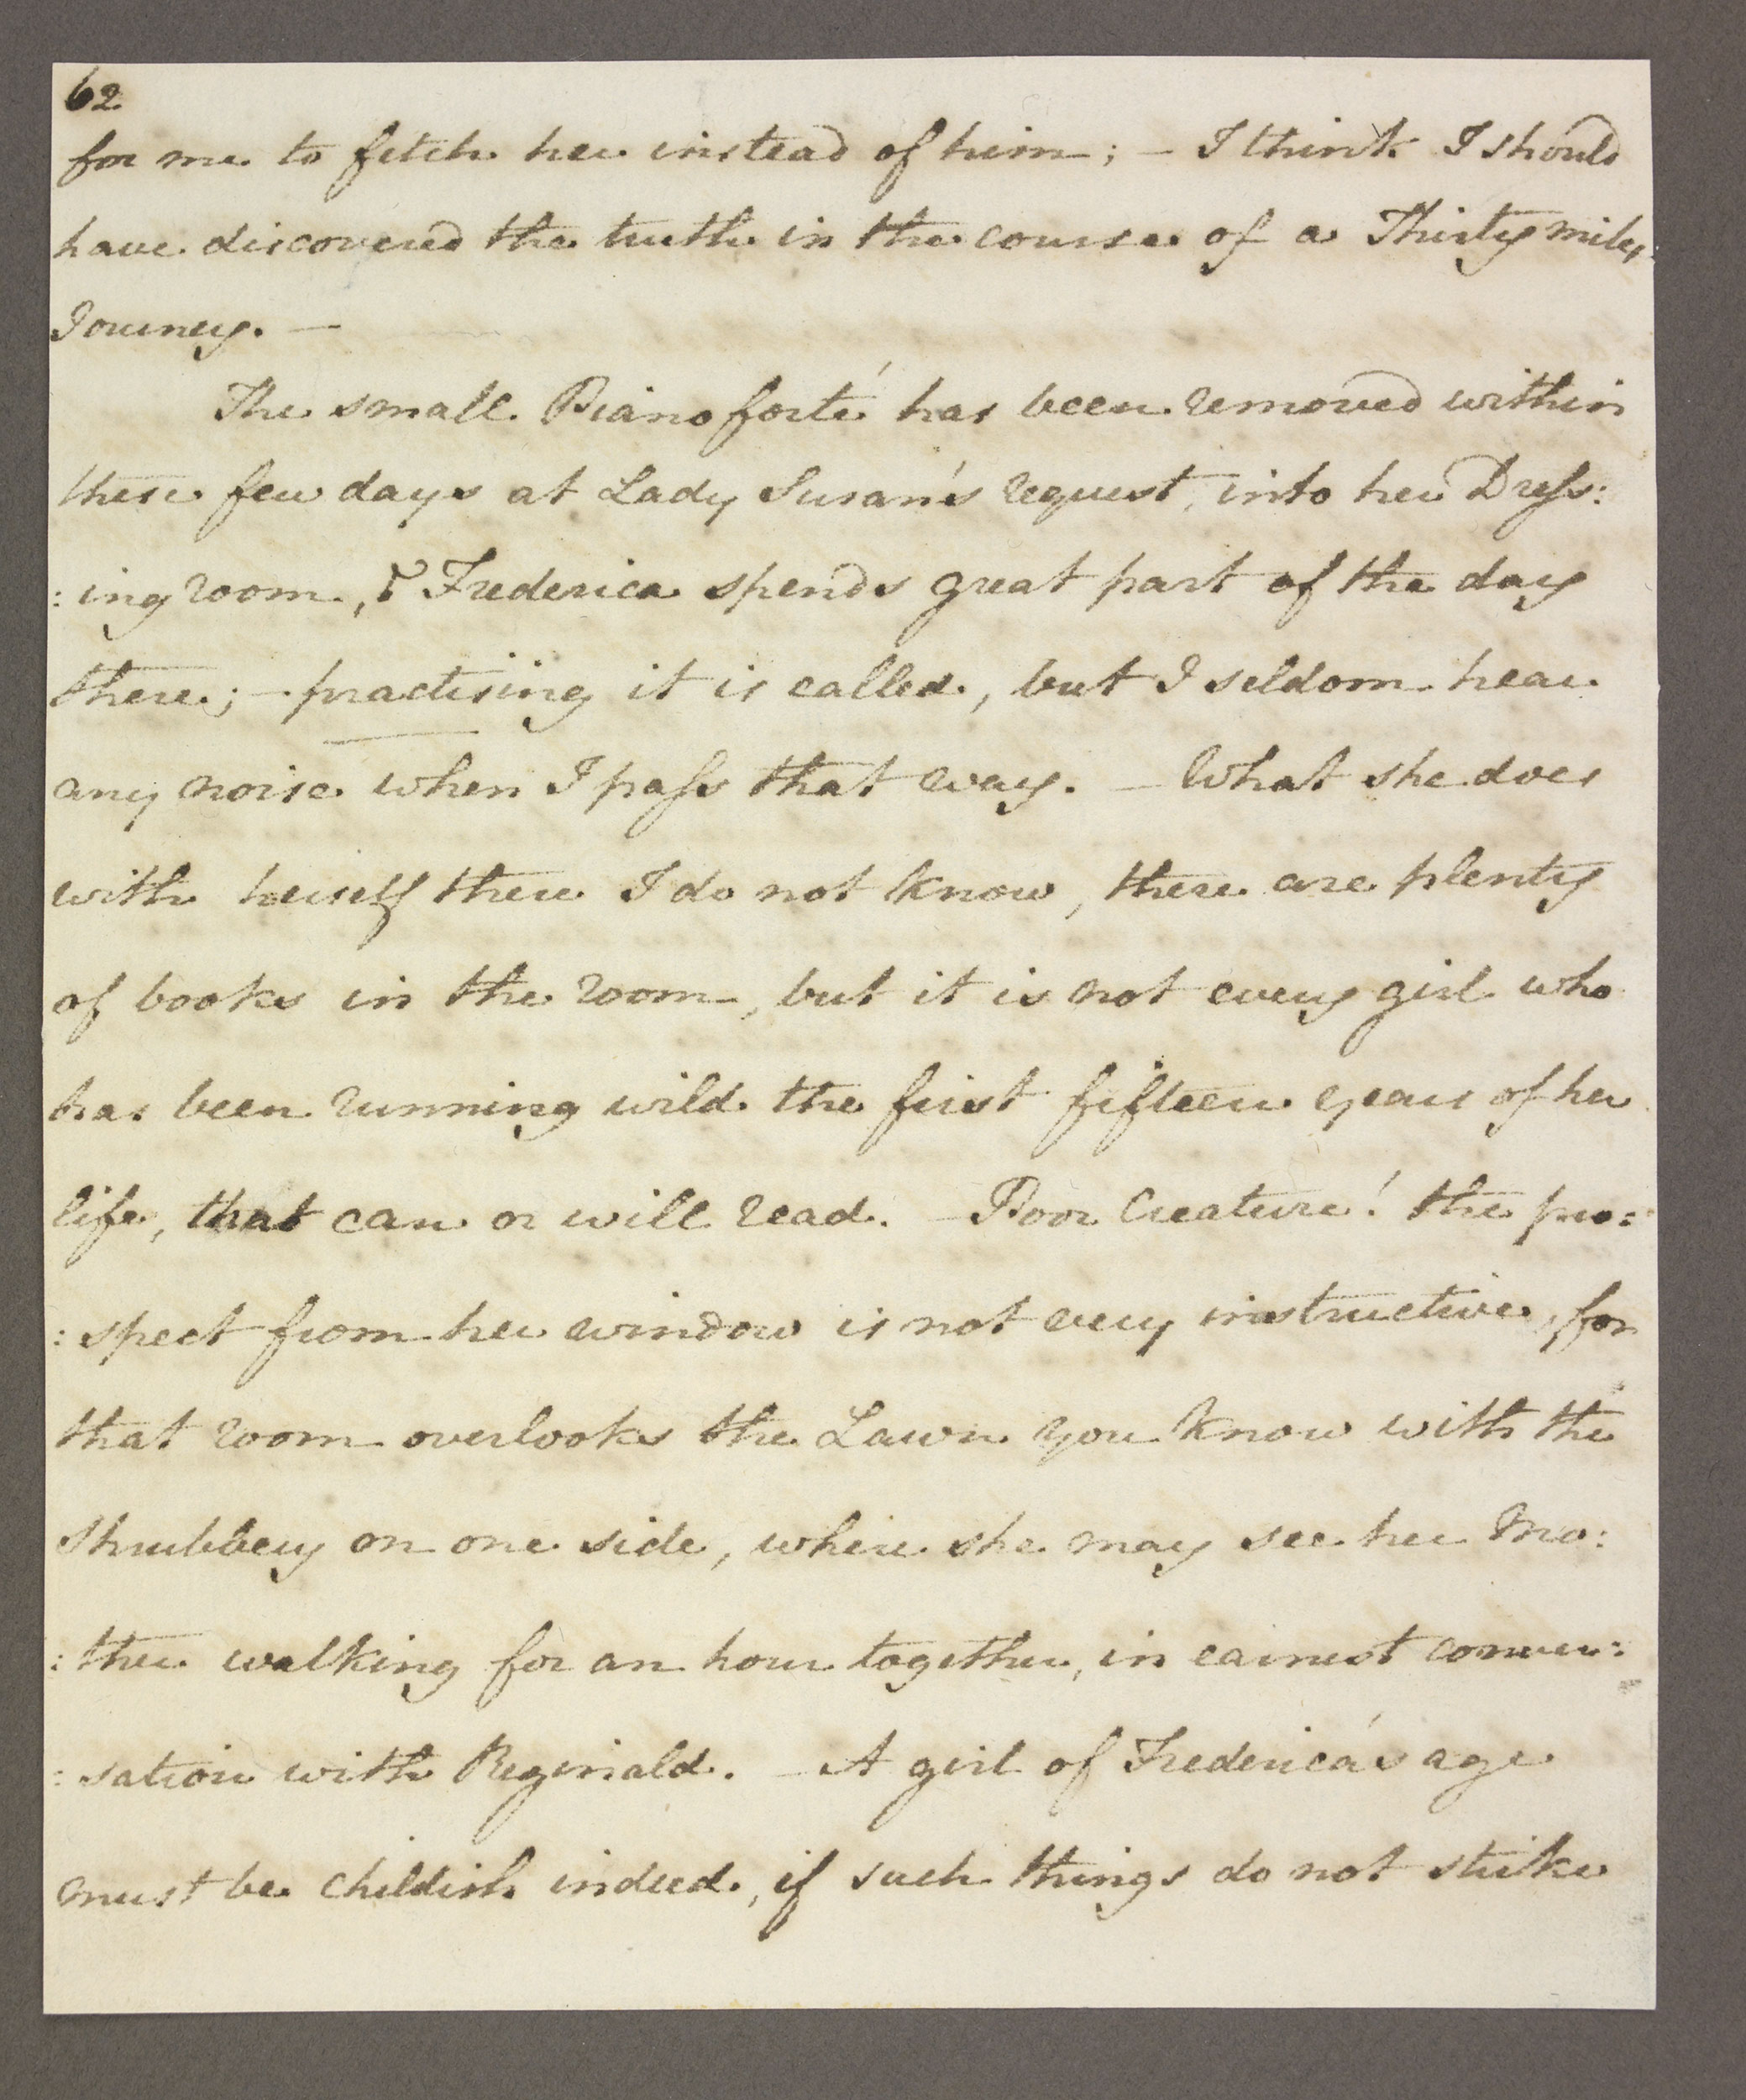 62
for me to fetch her instead of him; – I think I should
have discovered the truth in the course of a Thirty miles
Journey. –
The small Piano forté has been removed within
these few days at Lady Susan's request, into her Dress:
:ing room, & Frederica spends great part of the day
there; – practising it is called, but I seldom hear
any noise when I pass that way. – What she does
with herself there I do not know, there are plenty
of books in the room, but it is not every girl who
has been running wild the first fifteen years of her
life, that can or will read. – Poor Creature! the pro:
:spect from her window is not very instructive, for
that room overlooks the Lawn you know with the
Shrubbery on one side, where she may see her Mo:
:ther walking for an hour together, in earnest conver:
:sation with Reginald. – A girl of Frederica's age
must be Childish indeed, if such things do not strike